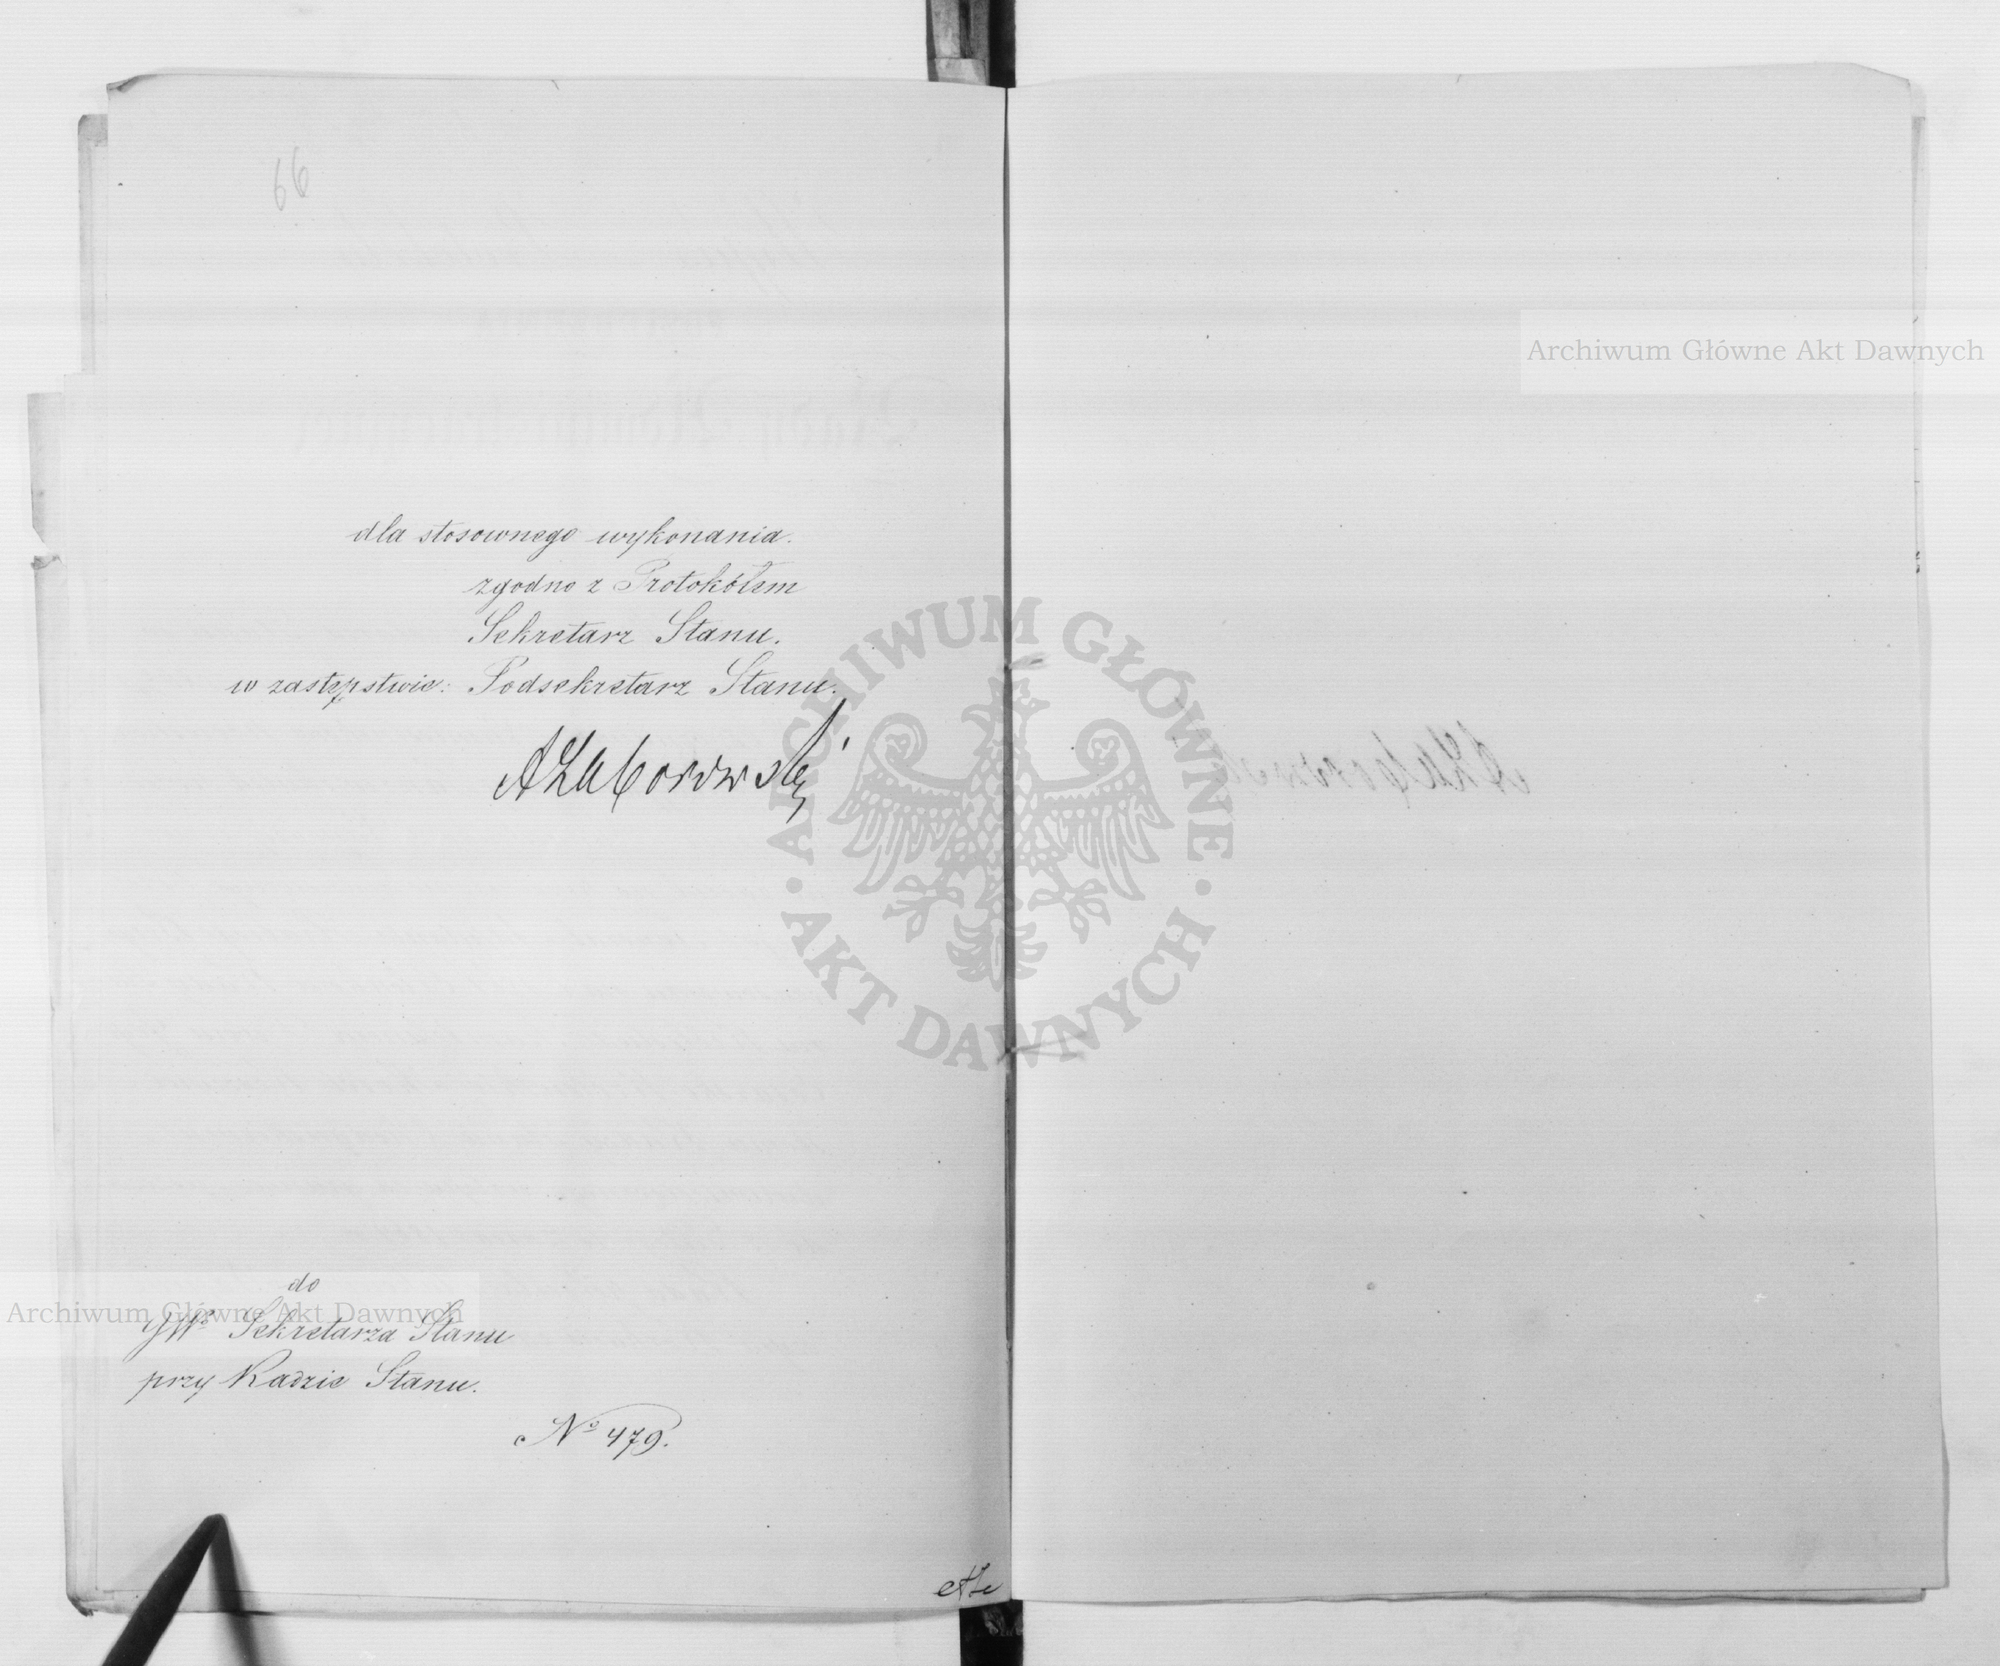 66
dla stosownego wykonania.
zgodno z Protokółem
Sekretarz Stanu.
w zastępstwie: Podsekretarz Stanu.
AZaborowski
do
JWo Sekretarza Stanu
przy Radzie Stanu.
No 479.
Archiwum Główne Akt Dawnych
ARCHIWUM GŁÓWNE
AKT DAWNYCH
Archiwum Główne Akt Dawnych